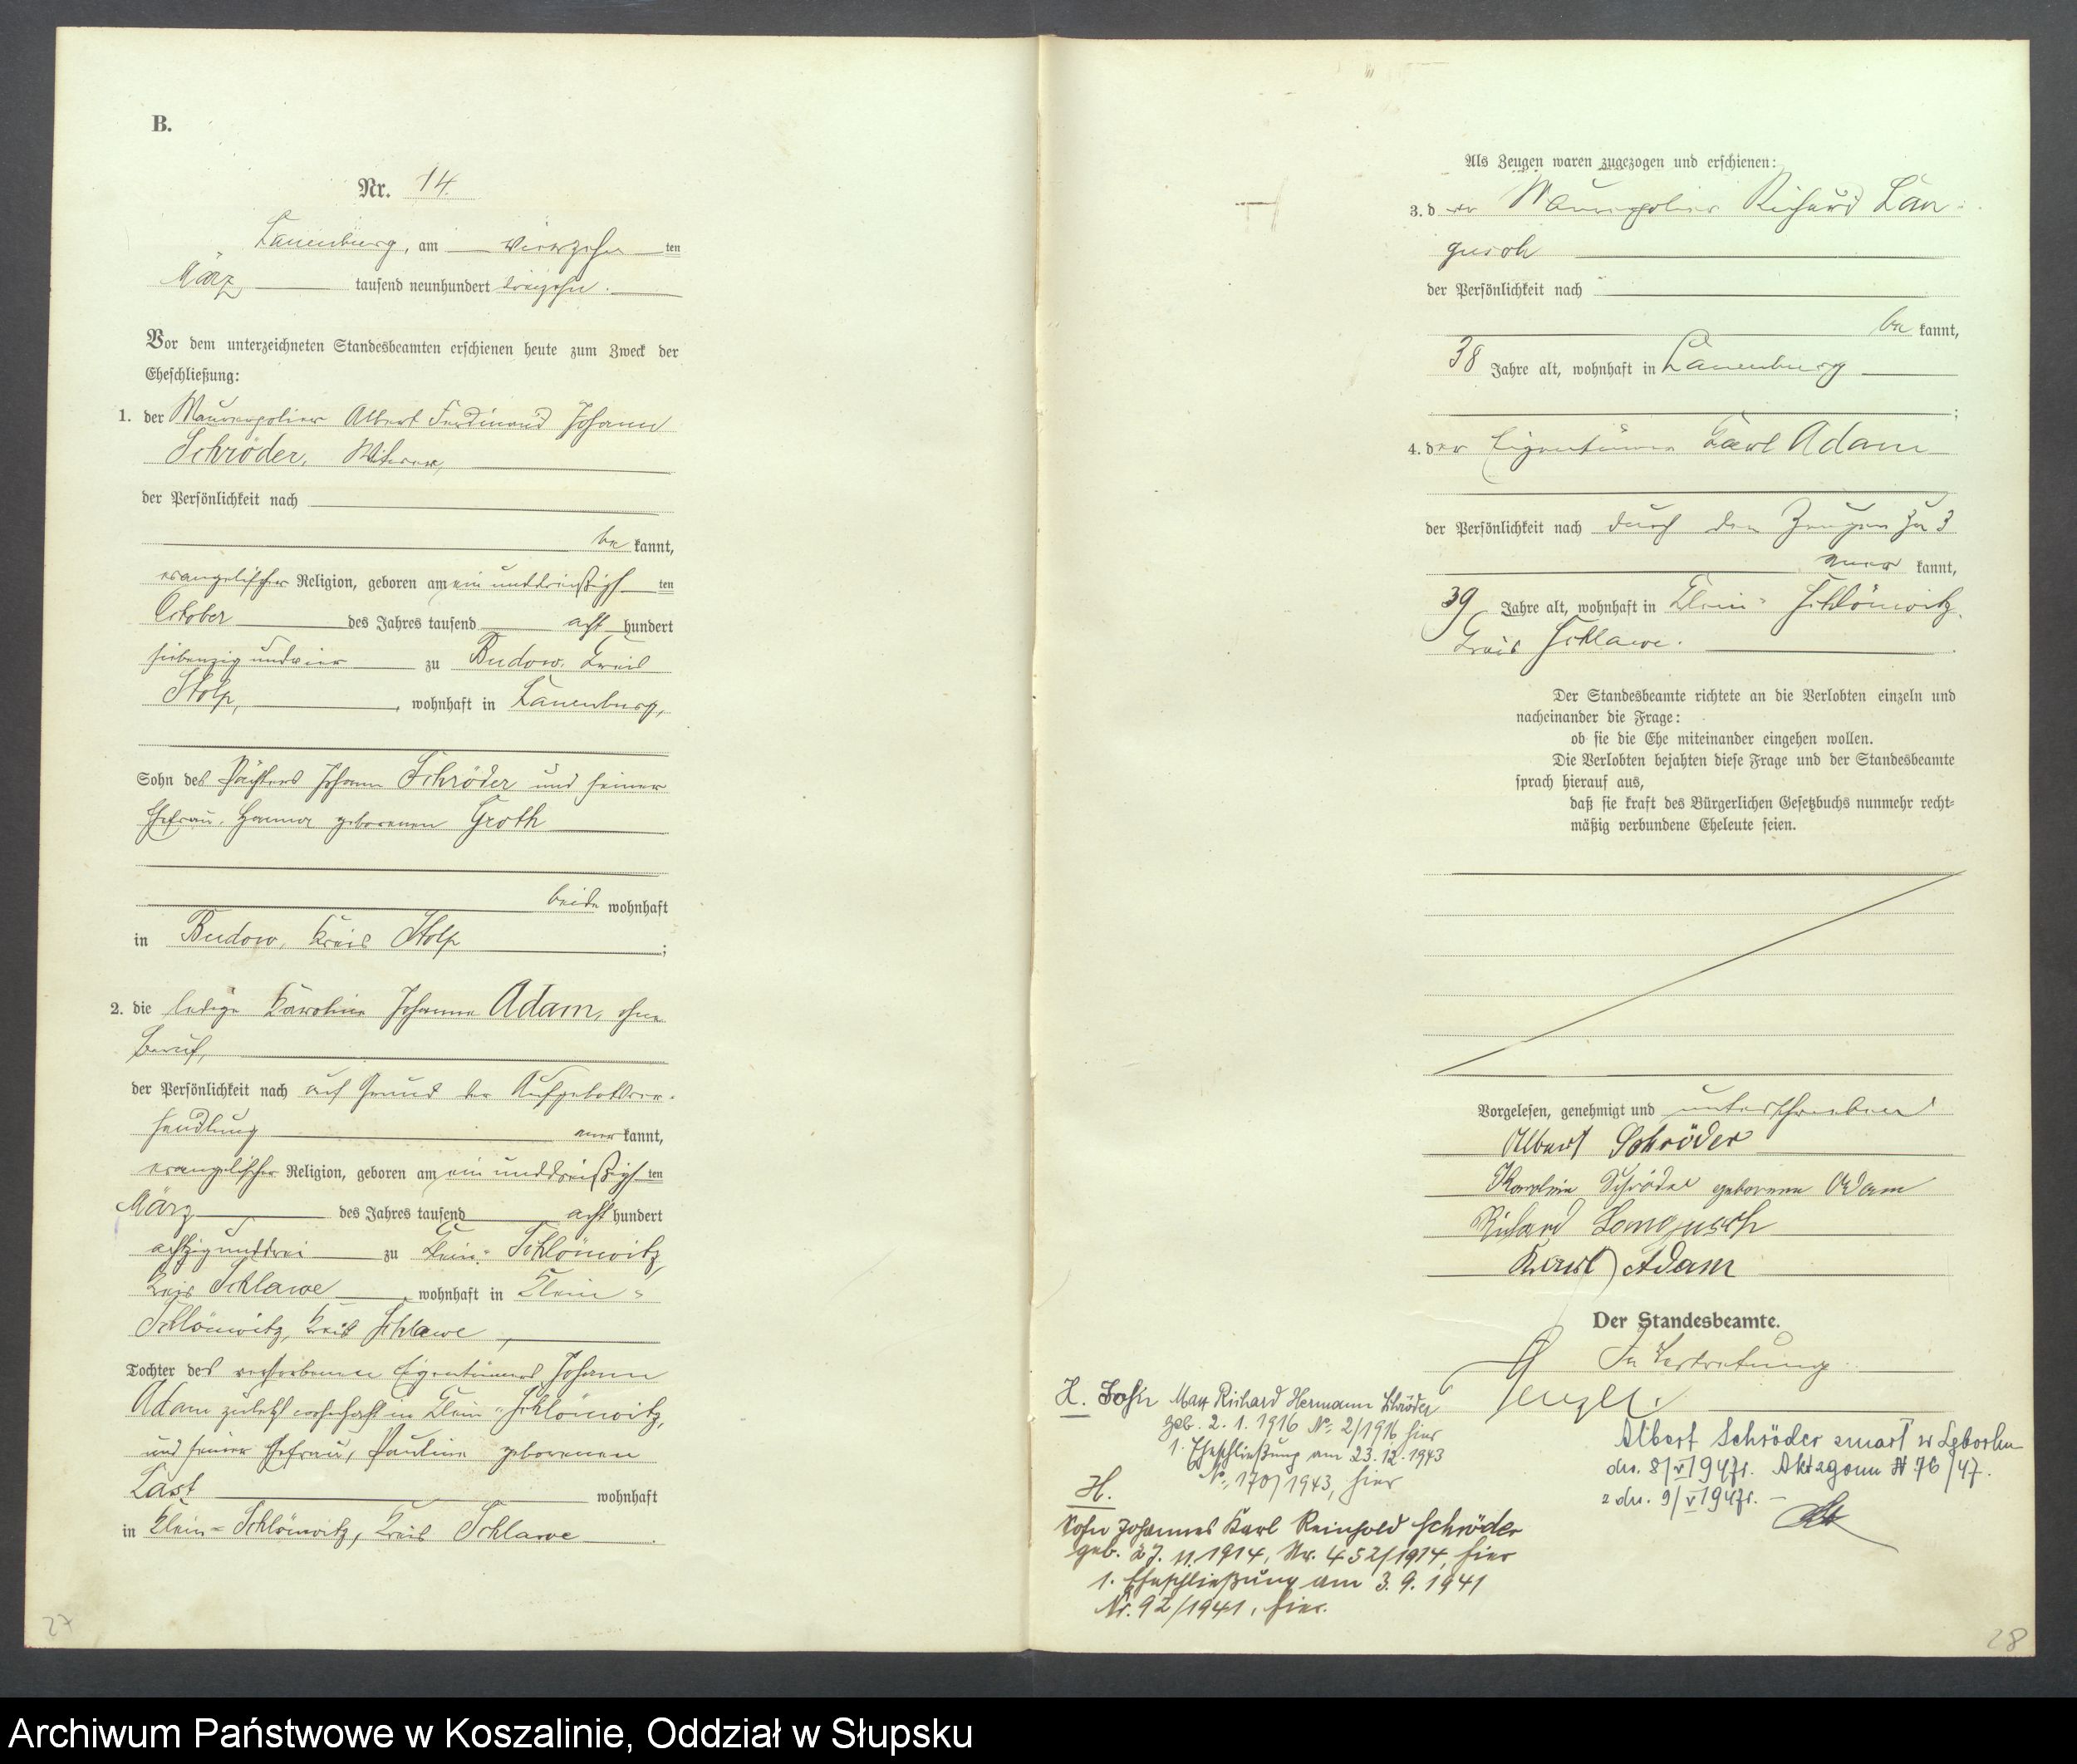 B.
Nr. 14.
Lauenburg, am vierzehnten
März tausend neunhundert dreizehn.
Vor dem unterzeichneten Standesbeamten erschienen heute zum Zweck der
Eheschließung:
1. der Maurerpolier Albert Ferdinand Johann
Schröder, Witwer,
der Persönlichkeit nach
be kannt,
evangelischer Religion, geboren am einunddreißigsten
October des Jahres tausend acht hundert
siebenzigundvier zu Budow, Kreis
Stolp, wohnhaft in Lauenburg,
Sohn des Pächters Johann Schröder und seiner
Ehefrau, Hanna geborenen Groth
beide wohnhaft
in Budow, Kreis Stolp ;
2. die ledige Karoline Johanna Adam, ohne
Beruf,
der Persönlichkeit nach auf Grund der Aufgebotsver-
handlung aner kannt,
evangelischer Religion, geboren am einunddreißigsten
März des Jahres tausend acht hundert
achtzigunddrei zu Klein-Schlönwitz,
Kreis Schlawe, wohnhaft in Klein-
Schlönwitz, Kreis Schlawe,
Tochter des verstorbenen Eigentümers Johann
Adam zuletzt wohnhaft in Klein-Schlönwitz,
und seiner Ehefrau, Pauline geborenen
Last wohnhaft
in Klein-Schlönwitz, Kreis Schlawe.
27
Als Zeugen waren zugezogen und erschienen:
3. der Maurerpolier Richard Lan-
gusch
der Persönlichkeit nach
be kannt,
38 Jahre alt, wohnhaft in Lauenburg
;
4. der Eigentümer Karl Adam
der Persönlichkeit nach durch den Zeugen zu 3
aner kannt,
39 Jahre alt, wohnhaft in Klein-Schlönwitz,
Kreis Schlawe.
Der Standesbeamte richtete an die Verlobten einzeln und
nacheinander die Frage:
ob sie die Ehe miteinander eingehen wollen.
Die Verlobten bejahten diese Frage und der Standesbeamte
sprach hierauf aus,
daß sie kraft des Bürgerlichen Gesetzbuchs nunmehr recht-
mäßig verbundene Eheleute seien.
Vorgelesen, genehmigt und unterschrieben
Albert Schröder
Karoline Schröder geborene Adam
Richard Langusch
Karl Adam
Der Standesbeamte.
In Vertretung
H. Sohn Max Richard Hermann Schröder
geb. 2. 1. 1916 No. 2/1916 hier
1. Eheschließung am 23. 12. 1943
No. 170/1943, hier
H.
Sohn Johannes Karl Reinhold Schröder
geb. 27. 11. 1914, Nr. 452/1914, hier
1. Eheschließung am 3. 9. 1941
Nr. 92/1941, hier.
Albert Schröder zmarł w Lęborku
dn. 8/V 1947r. Akt zgonu N 76/47.
z dn. 9/V 1947r. –
28
Archiwum Państwowe w Koszalinie, Oddział w Słupsku